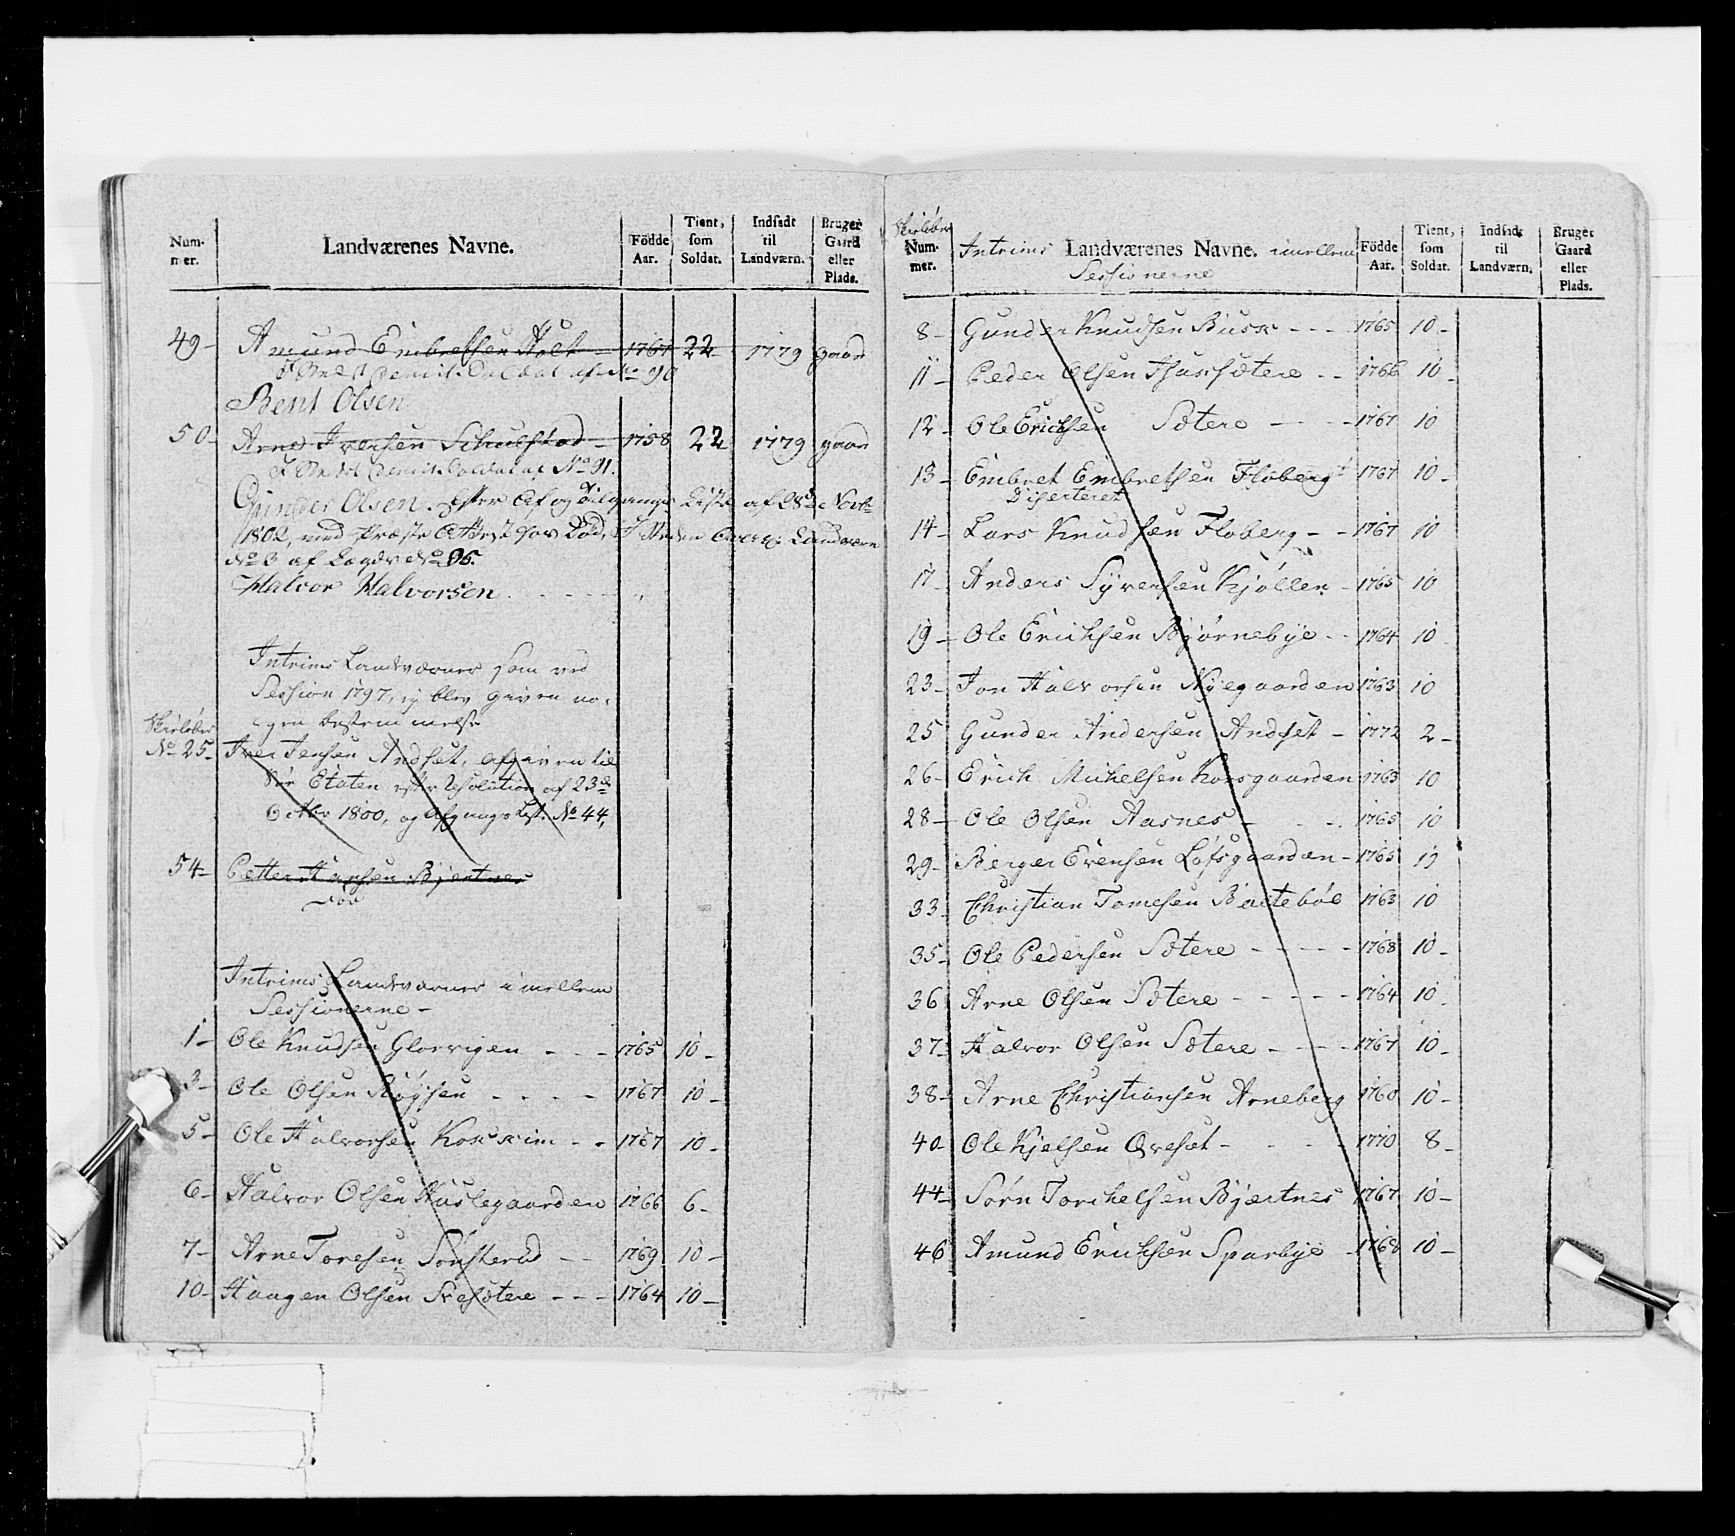 Num-
mer.
Landværenes Navne.
Födde
Aar.
Tient,
som
Soldat.
Indsadt
til
Landværn.
Bruger
Gaard
eller
Plads.
49- Amund Embretsen Holt 1767 22 1779 gaard
No 90
Bent Olsen
50- Arne Iversen Schulstad - 1758 22 1779 gaard
No 91.
Gunder Olsen. Efter Af og Tilgangs Liste af
1802, med Præste Attest for Død,
No 3 af Lægdv No 86.
Halvor Halvorsen
Intrims Landværner som ved
Session 1797, ej blev given no-
gen bestemmelse
Skiløber
No 25- Iver Jensen Andset, afgiven til
Søe Etaten efter Resolution af 23de
Octbr 1800, og Afgangs List. No 44,
54- Petter Hansen Bjertnes
Død
Intrims Landværner imellem
Sessionerne -
1- Ole Knudsen Glorvigen - - - 1765 10-
3- Ole Olsen Røgsen - - - - 1767 10-
5- Ole Halvorsen - - 1767 10-
6- Halvor Olsen Huslegaarden 1766 6-
7- Arne Toresen Sønsterud - - 1769 10-
10- Haagen Olsen Svesætere - - - 1764 10-
Skiløber
Num-
mer.
Intrims Landværenes Navne. imellem
Sessionerne
Födde
Aar.
Tient,
som
Soldat.
Indsadt
til
Landværn.
Bruger
Gaard
eller
Plads.
8- Gunder Knudsen Busk - - - 1765 10-
11- Peder Olsen - - 1766 10-
12- Ole Erichsen Sætere - - - 1767 10
13- Embret Embretsen Floberg 1767 10-
Diserteret
14- Lars Knudsen Floberg - - 1767 10
17- Anders Syversen Kjøllen - 1765 10
19- Ole Erichsen Bjørnebye - - 1764 10
23- Jon Halvorsen Nyegaarden 1763 10
25 Gunder Andersen Andset - 1772 2-
26- Erich Michelsen Korsgaarden 1763 10
28- Ole Olsen Aasnes - - 1765 10
29- Berger Evensen Løfsgaarden - 1765 10
33- Christian Tomesen Baltebøl 1763 10
35- Ole Pedersen Sætere - - - - - 1768 10-
36 Arne Olsen Sætere - - - - - 1764 10-
37- Halvor Olsen Sætere - - - - 1767 10-
38- Arne Christiansen Arneberg 1760 10-
40- Ole Kjelsen Qvesæt - - - - 1770 8-
44- Sørn Torchelsen Bjærtnes 1767 10-
46 Amund Erichsen Sparbye - 1768 10-